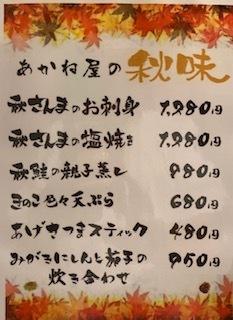 あかね屋の 秋味
秋さんまのお刺身 1,280円
秋さんまの塩焼き 1,280円
秋鮭の親子蒸し 980円
きのこ色々天ぷら 680円
あげさつまスティック 480円
みがきにしんと茄子の 950円
炊き合わせ